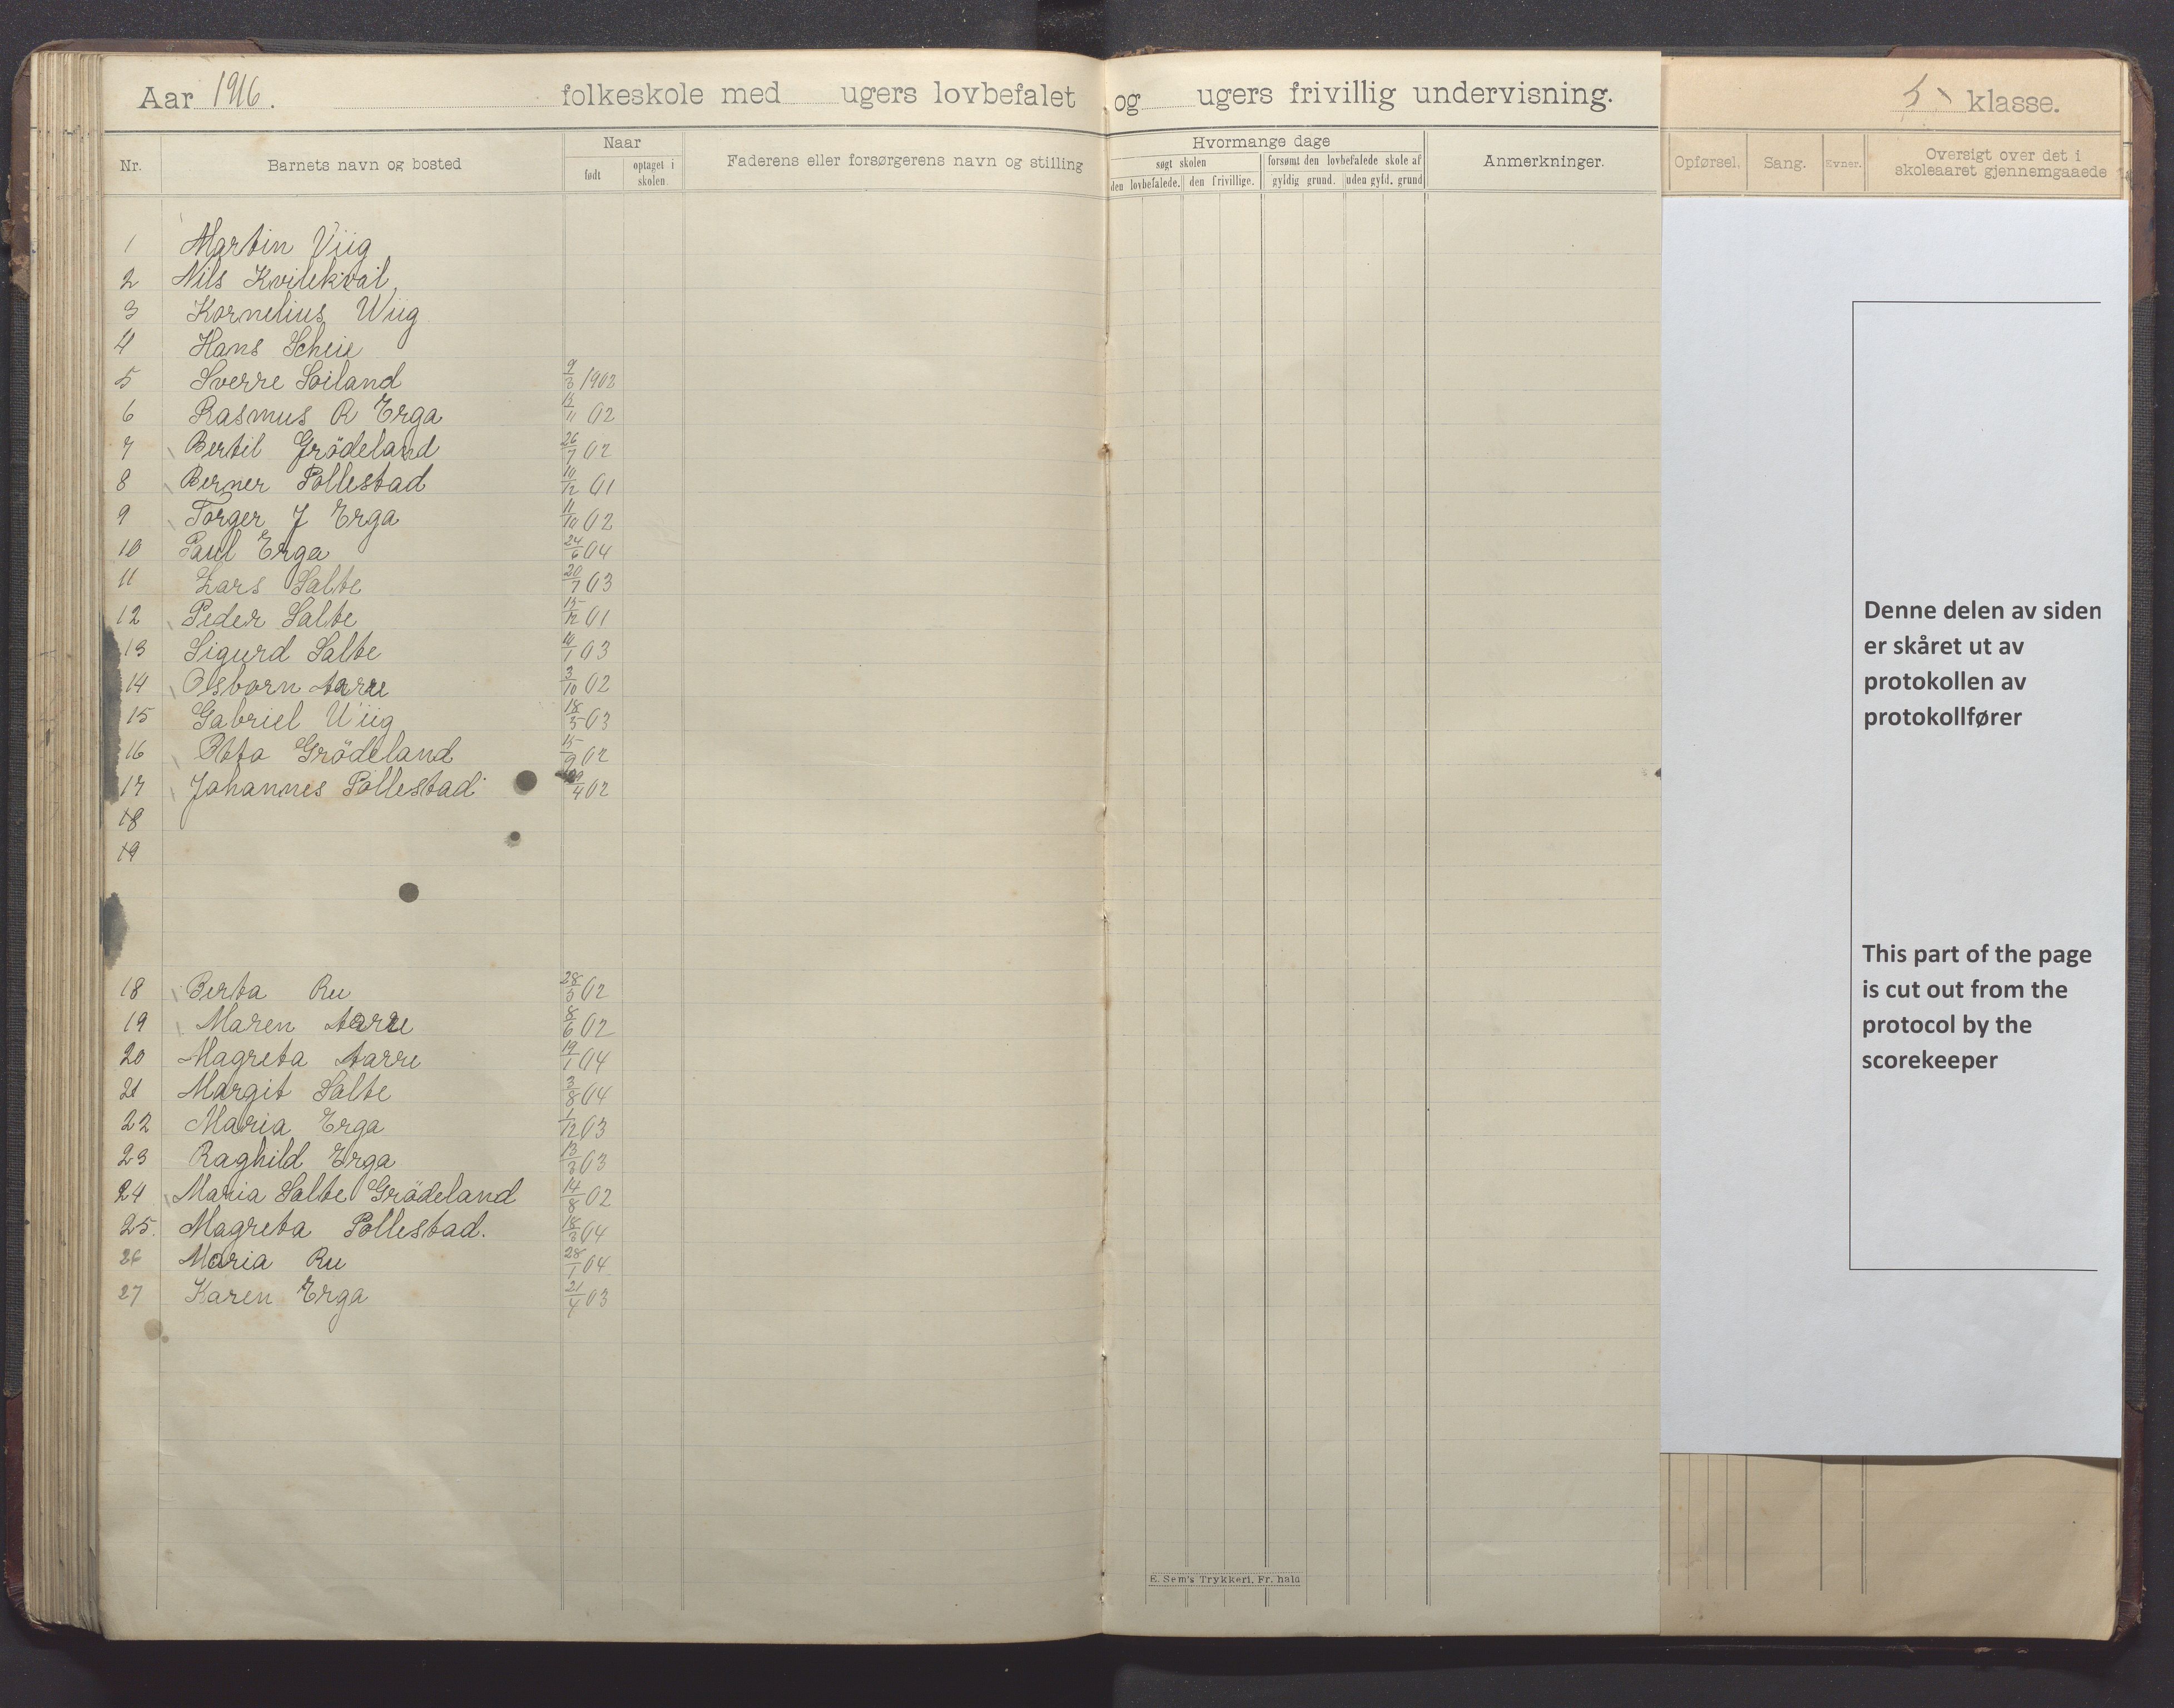 Aar 1916. folkeskole med ugers lovbefalet og ugers frivillig undervisning. 5 klasse.
Nr. Barnets navn og bosted Naar født optaget i skolen. Faderens eller forsørgerens navn og stilling Hvormange dage søgt skolen den lovbefalede. den frivillige. forsømt den lovbefalede skole af gyldig grund. uden gyld. grund Anmerkninger. Opførsel. Sang. Evner. Oversigt over det i skoleaaret gjennemgaaede
1 Martin Viig
2 Nils Kvilekval
3 Kornelius Wiig
4 Hans Scheie
5 Sverre Soiland 9/3 1902
6 Rasmus R Erga 11/11 02
7 Bertil Grödeland 26/7 02
8 Berner Pollestad 10/12 01
9 Torger J Erga 11/10 02
10 Paul Erga 24/6 04
11 Lars Salte 20/7 03
12 Peder Salte 15/12 01
13 Sigurd Salte 10/1 03
14 Osborn Aarre 3/10 02
15 Gabriel Wiig 18/5 03
16 Otto Grödeland 15/9 02
17 Johannes Pollestad 4 02
18
19
18 Berta Ru 28/5 02
19 Maren Aarre 8/6 02
20 Magreta Aarre 19/1 04
21 Margit Salte 3/8 04
22 Maria Erga 1/12 03
23 Raghild Erga 13/3 03
24 Maria Salte Grödeland 14/8 02
25. Magreta Pollestad. 18/3 04
26 Maria Ru 28/1 04
27 Karen Erga 21/4 03
E. Sem's Trykkeri, Fr. hald
Denne delen av siden
er skåret ut av
protokollen av
protokollfører
This part of the page
is cut out from the
protocol by the
scorekeeper